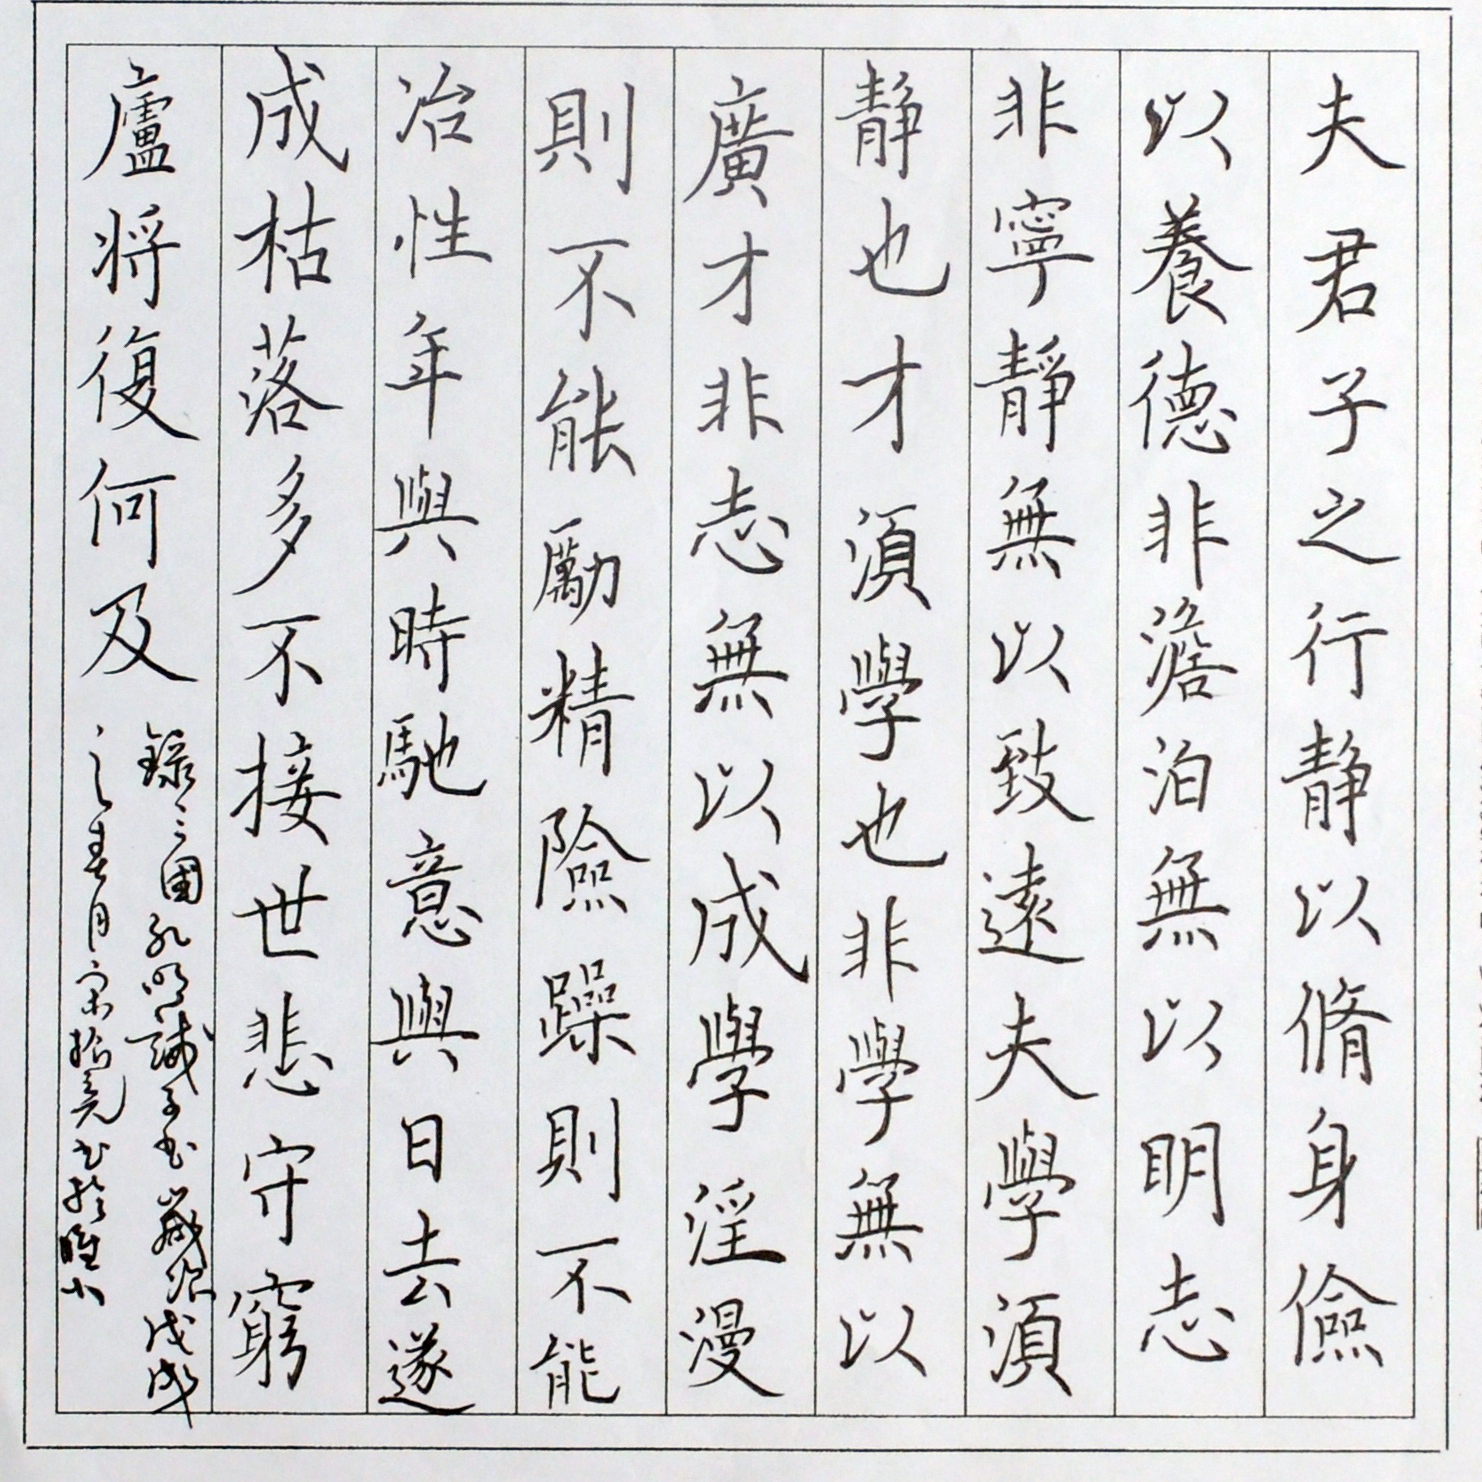 夫君子之行静以脩身儉
以養德非澹泊無以明志
非寧靜無以致遠夫學湏
静也才湏學也非學無以
廣才非志無以成學淫漫
則不能勵精險躁則不能
冶性年與時馳意與日去遂
成枯落多不接世悲守窮
廬将復何及
錄三國孔明誡子書歲次戊戌
之春月宋書於